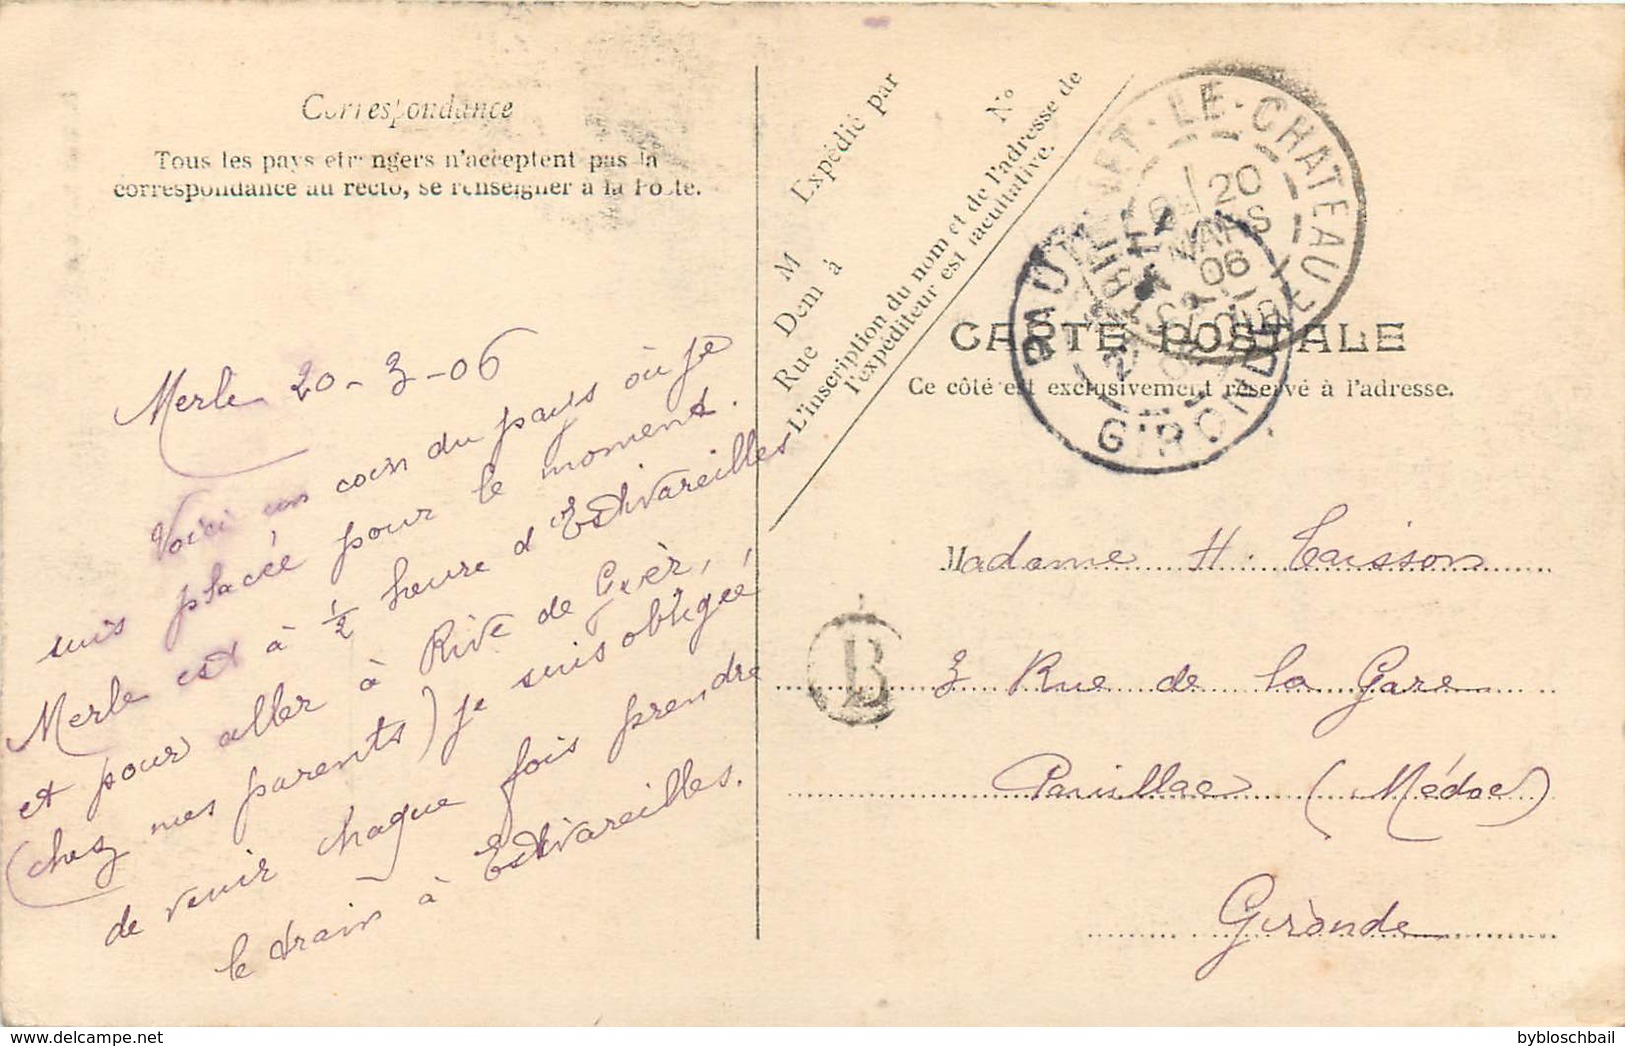 Correspondance
Tous les pays étrangers n'acceptent pas la
correspondance au recto, se renseigner à la Poste.
Merle 20-3-06
Voici un coin du pays où je
suis placée pour le moment.
Merle est à ½ heure d'Estivareilles
et pour aller à Rive de Gier,
(chez mes parents) je suis obligée
de venir chaque fois prendre
le train à Estivareilles.
Expédié par
M
Dem à
Rue
N°
L'inscription du nom et de l'adresse de
l'expéditeur est facultative.
CARTE POSTALE
Ce côté est exclusivement réservé à l'adresse.
LE-CHATEAU
LOIRE
20
MARS
06
GIRONDE
B
Madame H. Caisson
3 Rue de la Gare
Pauillac (Médoc)
Gironde
bybloschbail